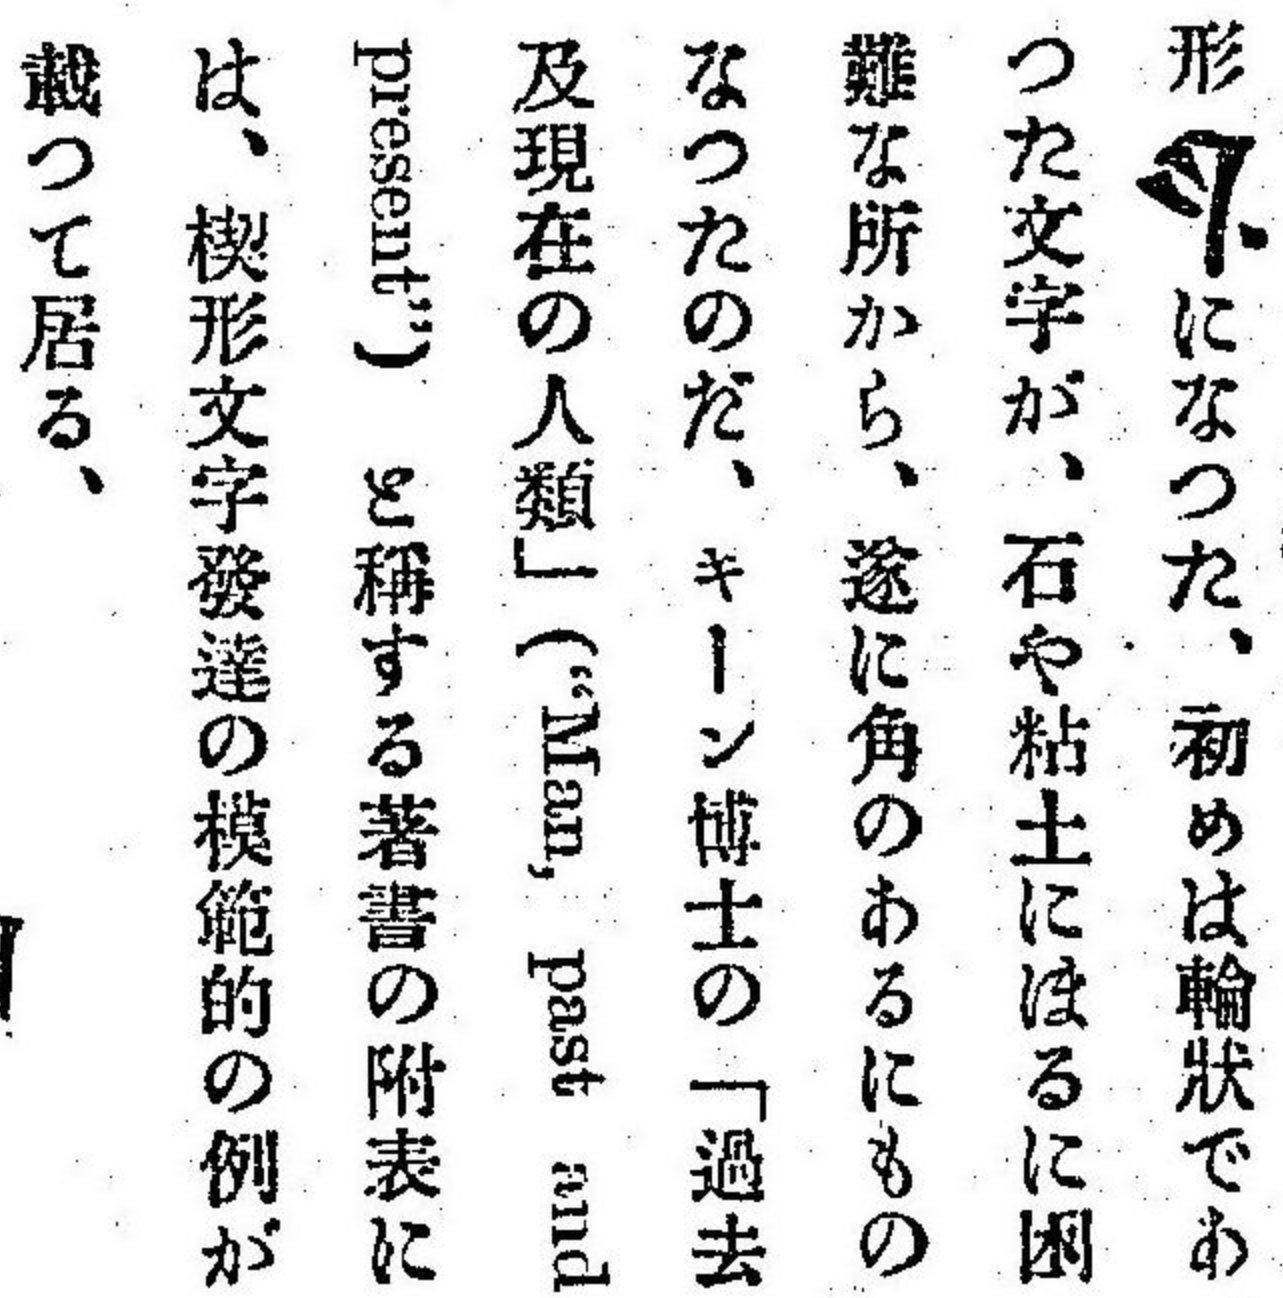 形になつた、初めは輪狀であ
つた文字が、石や粘土にほるに困
難な所から、遂に角のあるにもの
なつたのだ、キーン博士の「過去
及現在の人類」(“Man, past and
present”) と稱する著書の附表に
は、楔形文字發達の模範的の例が
載つて居る、